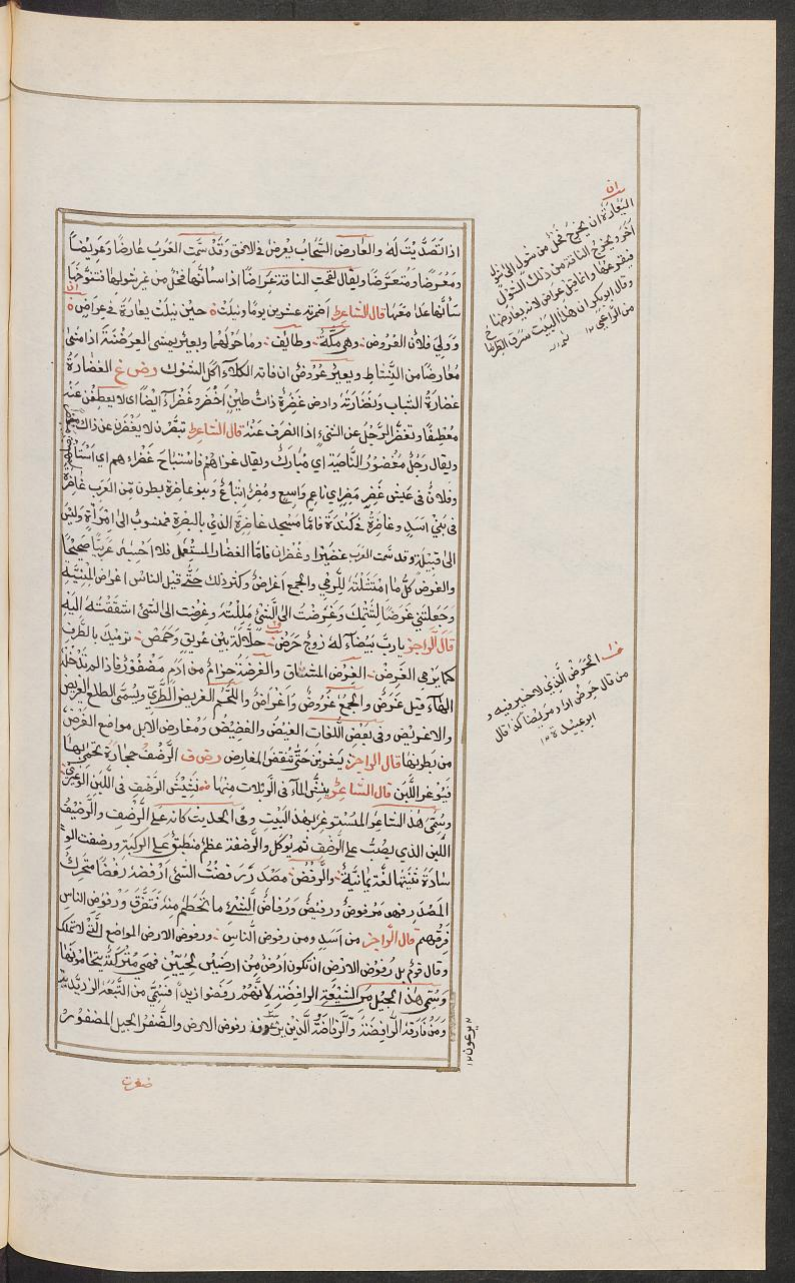 اذا تصدّيت له والعارض السّحاب يعرض فى الافق وقد سمّت العرب عارضًا وعريضًا
ومعرّضًا ومتعرّضًا ويقال لقحت الناقة عِراضًا اذا سانّها فحلٌ من غير شولها فتنوّخها
سانّها عدا معها قال الشاعر اضمرته عشرين يومًا ونيلت حين نيلت يعارة فى عراض
وولى فلان العروض وهى مكّة وطائف وما حولهما وبعير يمشى العرضنة اذا مشى
معارضًا من النشاط وبعير عروض ان فاته الكلأ اكل الشوك رض غ الغضارة
غضارة الشباب ونضارته وارض غضرة ذات طين اخضر وغضراء ايضًا اى لا يعطفن عنه
معطفًا وتغضّر الرجل عن الشىء اذا انصرف عنه قال الشاعر
ويقال رجل مغضور الناصية اى مبارك ويقال غزاهم فاستباح غضراءهم اى
وفلان فى عيش غضر مضر اى ناعم واسع ومضر اتباع وبنو غاضرة بطون من العرب غاضرة
فى بنى اسد وغاضرة فى كندة فامّا مسجد غاضرة الذى بالبصرة فمنسوب الى امرأة وليس
الى قبيلة وقد سمّت العرب غضيرًا وغضران فامّا الغضار المستعمل فلا احسبه عربيًا صحيحًا
والغرض كل ما امتثلته للرمى والجمع اغراض وكثر ذلك حتى قيل الناس اغراض المنيّة
وجعلتنى غرضًا لشتمك وغرضت الى الشىء مللته وغرضت الى الشىء اشتقت اليه
قال الراجز يا ربّ بيضاء لها زوج حرض حلّالة بين عريق وحمض ترميك بالطرف
كما يرمى الغرض الغرض المشتاق والغرضة حزام من ادم مضفور فاذا لم تدخله
الهاء قيل غرض والجمع غروض واغراض واللحم الغريض الطرىّ ويسمّى الطلع الغريض
والاغريض وفى بعض اللغات الغيض والغضيض ومغارض الابل مواضع الغرض
من بطونها قال الراجز يشربن حتى تنقض المغارض رض ف الرضف حجارة تحمى
فيوغر اللبن قال الشاعر ينشّ الماء فى الربلات منها نشيش الرضف فى اللبن الوغير
وسمّى هذا الشاعر المستوغر بهذا البيت وفى الحديث كانه على الرضف والرضيف
اللبن الذى يصبّ على الرضف ثم يوكل والرضفة عظم منطبق على الركبة ورضفت
سادة ثنيتها لغة يمانيّة والرفض مصدر رفضت الشىء ارفضه رفضًا متحرك
المصدر فهو مرفوض ورفيض ورفاض الشىء ما تحطم منه فتفرّق ورفوض الناس
فرقهم قال الراجز من اسد ومن رفوض الناس ورفوض الارض المواضع التى لا تملك
وقال قوم بل رفوض الارض ان تكون ارض بين ارضين لحيّين فهى متروكة يتحامونها
وسمّى هذا الجيل من الشيعة الرافضة لانهم رفضوا زيدًا فسمّى من اتبعه الزيديّة
ومن فارقه الرافضة والرفّاضة الذين رفوض الارض والضفر الحبل المضفور
ضفرت
يرعون ١٢
ان
اليعارة ان يخرج فحل من شول الى شول
آخر ويخرج الناقة من ذلك الشول
فيقرعها وانما قيل عراض لانه يعارضها
وقال ابو بكر ان هذا البيت سرق الطرماح
من الراعى ١٢
الحرض الذى لا خير فيه و
من قال حرض اراد مريضًا كذا قال
ابو عبيدة ١٢